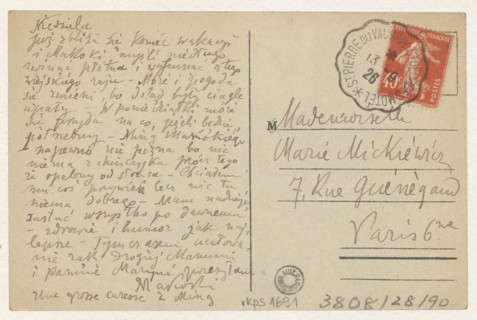 Niedziela
Już zbliża się koniec wakacyj
i Makoski myśli niedługo
zwinąć płótna i wyruszać z tego
wiejskiego raju — Może i pogoda
się zmieni, bo dotąd były ciągle
upały — W poniedziałki może
się przyda na co, jeżeli będzie
potrzebny — Miną Makoskiego
napewno nie pozna bo nic
niema z chińczyka prócz tego
że opalony od słońca — Chciałem
mu coś przywieźć lecz nic tu
niema dobrego — Mam nadzieję
zastać wszystko po dawnemu
— zdrowie i humor jak naj
lepsze — Tymczasem całowa
nie rąk drogiej Mamusi
i Pannie Maryni przesyłam
Makoski
Une grosse caresse à Mina
ST PIERRE DU VAUVRAY
13
26
POSTES
40c
M
Mademoiselle
Marie Mickiéwicz
7, Rue Guénégaud
Paris 6ème
rkps 1691
3808/28/90